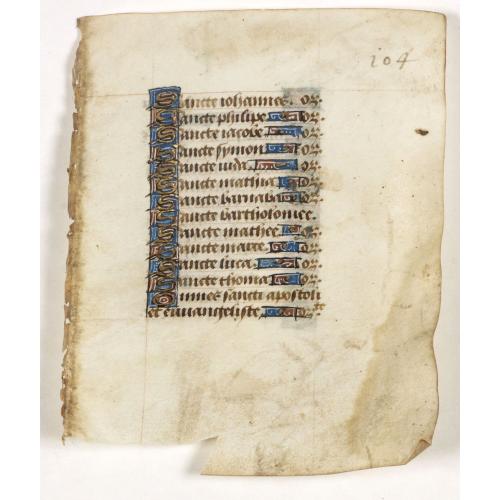 104
Sancte iohannes. or.
Sancte philipe or.
Sancte iacobe or.
Sancte symon or.
Sancte iuda or.
Sancte mathia or.
Sancte barnaba or.
Sancte bartholomee.
Sancte mathee. or.
Sancte marce. or.
Sancte luca or.
Sancte thoma or.
Omnes sancti apostoli
et euuangeliste or.